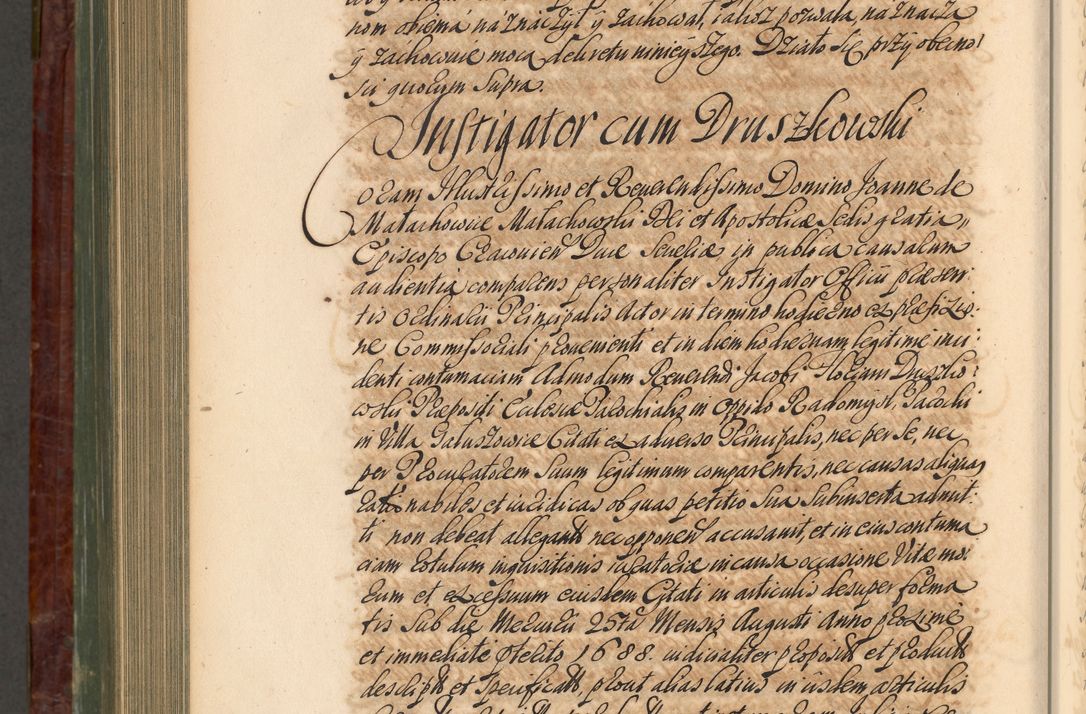 nom obiema náżnáczył y záchował, iákosz pozwala, náżnacża
y záchowuie mocą dekretu ninieyszego. Działo się przy obecno:
sci quorum supra.
Instigator cum Druszkowski
Coram Illustrissimo et Reverendissimo Domino Joanne de
Małachowice Małachowski Dei et Apostolicæ Sedis gratia
Episcopo Cracovien Duce Severiæ in publica causarum
audientia comparens personaliter Instigator Officii præsen:
tis Ordinarii Principalis Actor in termino hodierno ex præfixio:
ne Commissoriali provenienti et in diem hodiernam legitime inci:
denti contumaciam Admodum Reverendi Jacobi Floriani Druszko:
wski Præpositi Ecclesiæ Parochialis in Oppido Radomysl, Parochi
in Villa Galuszowice Citati ex adverso Principalis, nec per se, nec
per Procuratorem suum legitimum comparentis, nec causas aliquas
rationabiles et iuridicas ob quas petitio sua subinserta admit:
ti non debeat allegantis nec opponen accusavit, et in eius contuma
ciam rotulum inquisitionis iuratoriæ in causa occasione vitæ mo:
rum et excessuum eiusdem Citati in articulis desuper forma
tis sub die Mercurii 25ta Mensis Augusti Anno proxime
et immediate præterito 1688. iudicialiter propositis et productis
descriptis et specificatis, prout alias latius in iisdem articulis